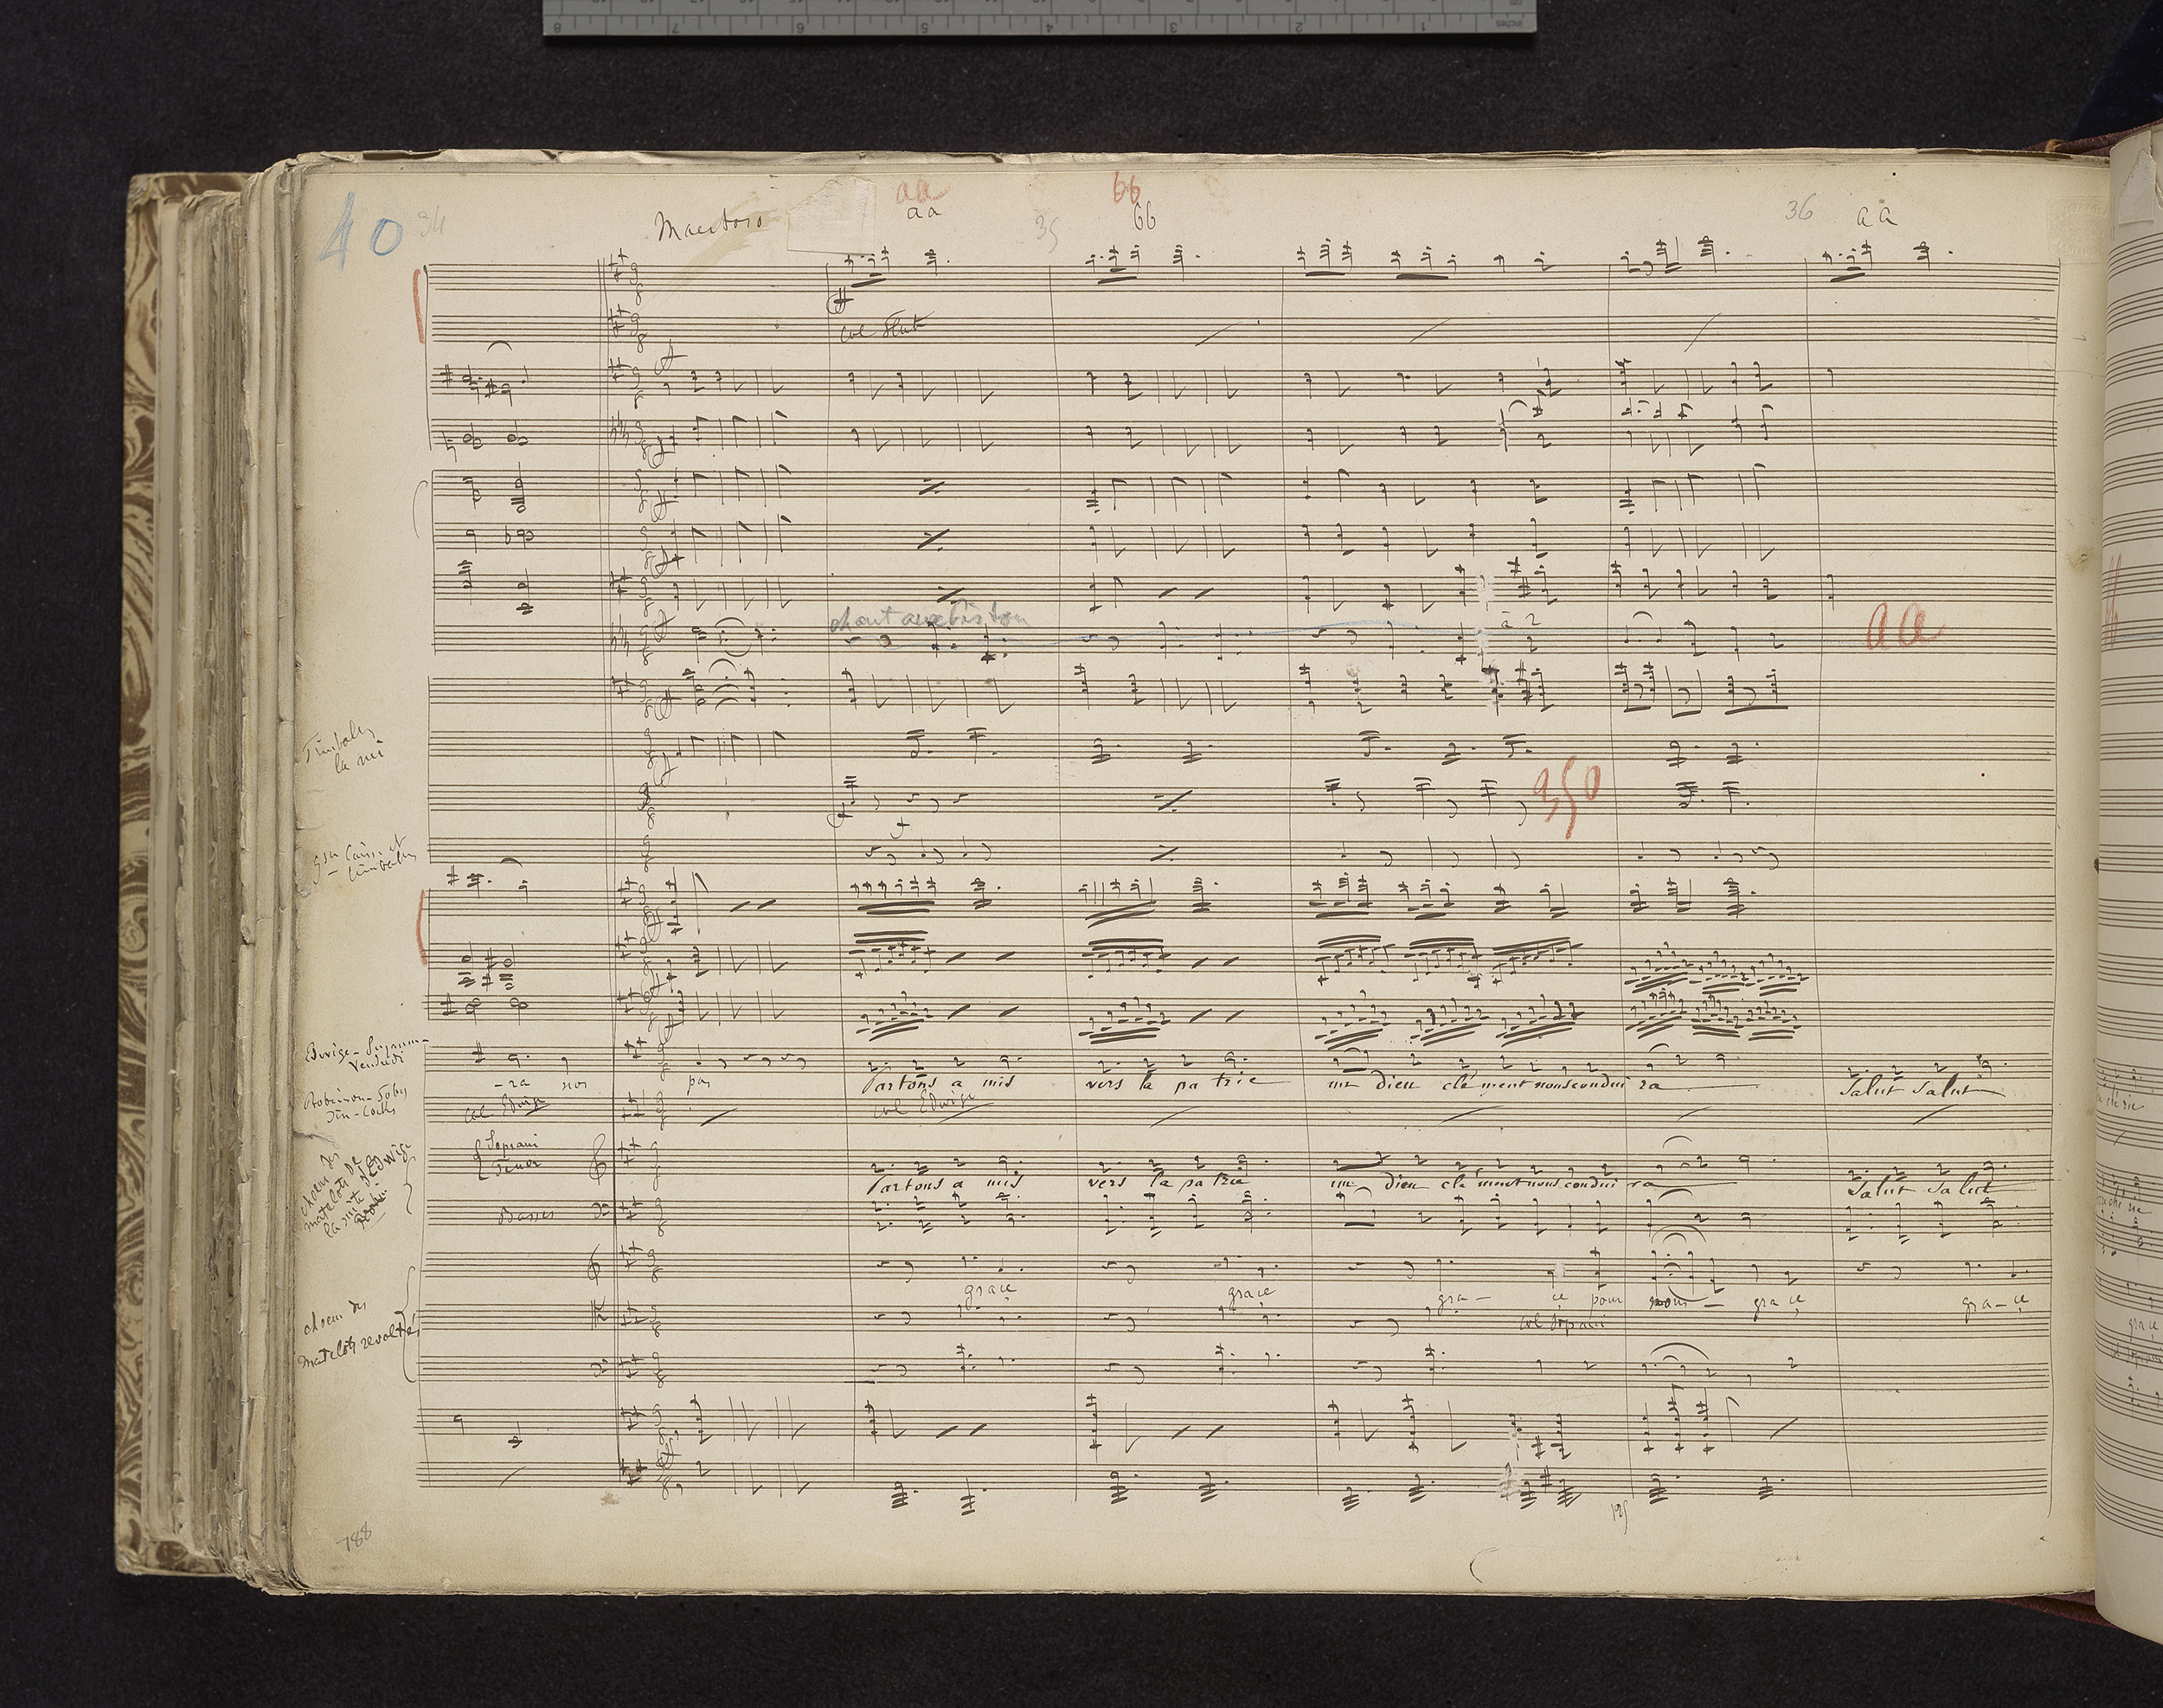 40 34
Maestoso
aa
aa
35
bb
66
36
aa
col Flute
chant aux Piston
à 2
aa
Timbales
la mi
950
gsse Caisse et
Cimbales
Edwige - Suzanne -
Vendredi
-ra nos pas Partons amis vers la patrie un dieu clément nous condui ra Salut Salut
Robinson - Toby
Jim-Cocks
col Edwige
col Edwige
choeur des
matelots de
la suite d'Edwige
Robin
Soprani
Tenor
Partons amis vers la patrie un dieu clément nous condui ra Salut Salut
Basses
grace grace gra - ce pour nous - grace gra - ce
choeur des
Matelots revoltés
col Soprani
195
788
8 7 6 5 4 3 2 1 inches